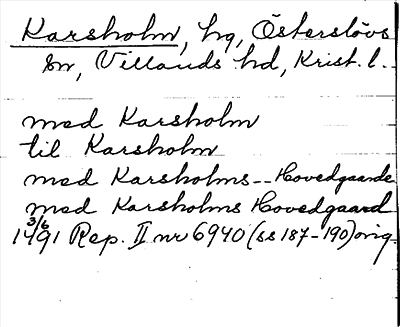 Karsholm, hg, Österslövs
sn, Villands hd, Krist. l.
med Karsholm
til Karsholm
med Karsholms -- Hovedgaarde
med Karsholms Hovedgaard
1491 3/6 Rep. II nr 6940 (ss 187-190) orig.